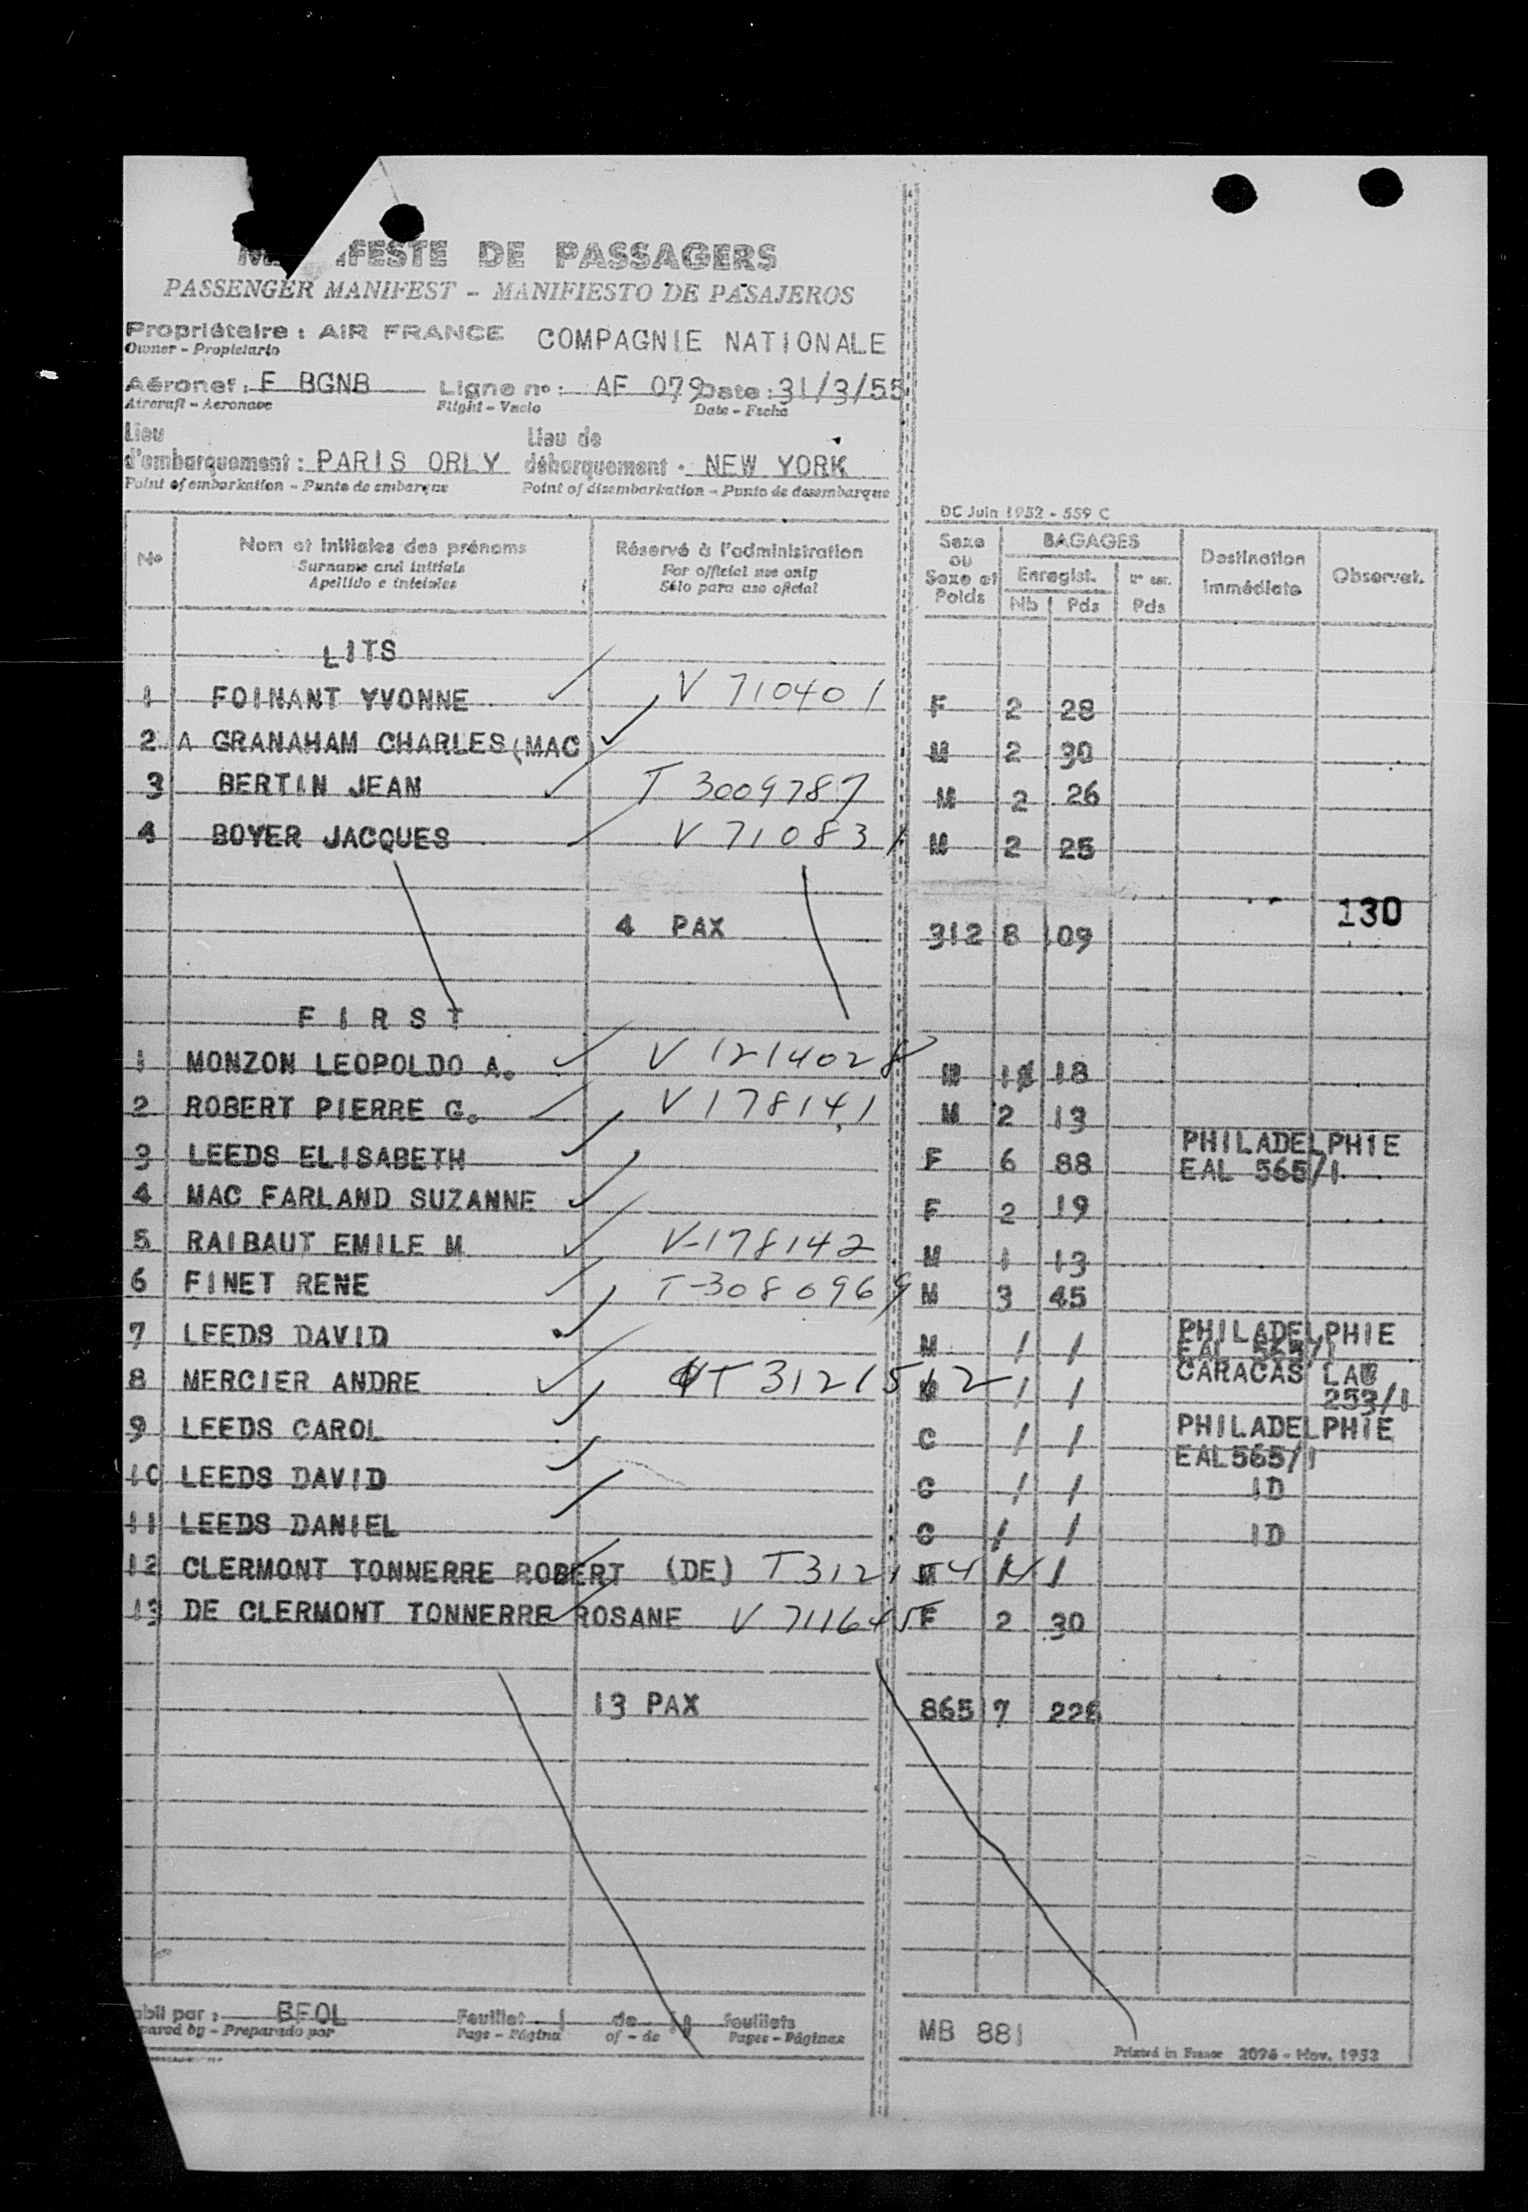 MANIFESTE DE PASSAGERS
PASSENGER MANIFEST - MANIFIESTO DE PASAJEROS
Propriétaire : AIR FRANCE COMPAGNIE NATIONALE
Owner - Propietario
Aéronef : F BGNB Ligne no : AF 079 Date : 31/3/55
Aircraft - Aeronave Flight - Vuelo Date - Fecha
Lieu Lieu de
d'embarquement : PARIS ORLY débarquement . NEW YORK
Point of embarkation - Punto de embarque Point of disembarkation - Punto de desembarque
DC Juin 1952 - 559 C
No Nom et initiales des prénoms Réservé à l'administration Sexe BAGAGES Destination Observat.
Surname and initials For official use only ou Enregist. immédiate
Apellido e iniciales Sólo para uso oficial Sexe et Poids Nb Pds Pds
LITS
1 FOINANT YVONNE V 710401 F 2 28
2 A GRANAHAM CHARLES (MAC) M 2 30
3 BERTIN JEAN T 3009787 M 2 26
4 BOYER JACQUES V 710831 M 2 25
130
4 PAX 312 8 109
FIRST
1 MONZON LEOPOLDO A. V 1214028 M 1 18
2 ROBERT PIERRE G. V 178141 M 2 13
3 LEEDS ELISABETH F 6 88 PHILADELPHIE
EAL 565/1
4 MAC FARLAND SUZANNE F 2 19
5 RAIBAUT EMILE M V-178142 M 1 13
6 FINET RENE T-3080969 M 3 45
7 LEEDS DAVID M / / PHILADELPHIE
EAL 565/1
8 MERCIER ANDRE T 3121512 M / / CARACAS LAV
253/1
9 LEEDS CAROL C / / PHILADELPHIE
EAL565/1
10 LEEDS DAVID C / / ID
11 LEEDS DANIEL C / / ID
12 CLERMONT TONNERRE ROBERT (DE) M
13 DE CLERMONT TONNERRE ROSANE V 711645 F 2 30
13 PAX 865 7 226
abli par : BFOL Feuillet 1 de feuillets
pared by - Preparado por Page - Página of - de Pages - Páginas
MB 881
Printed in France 2096 - Nov. 1953